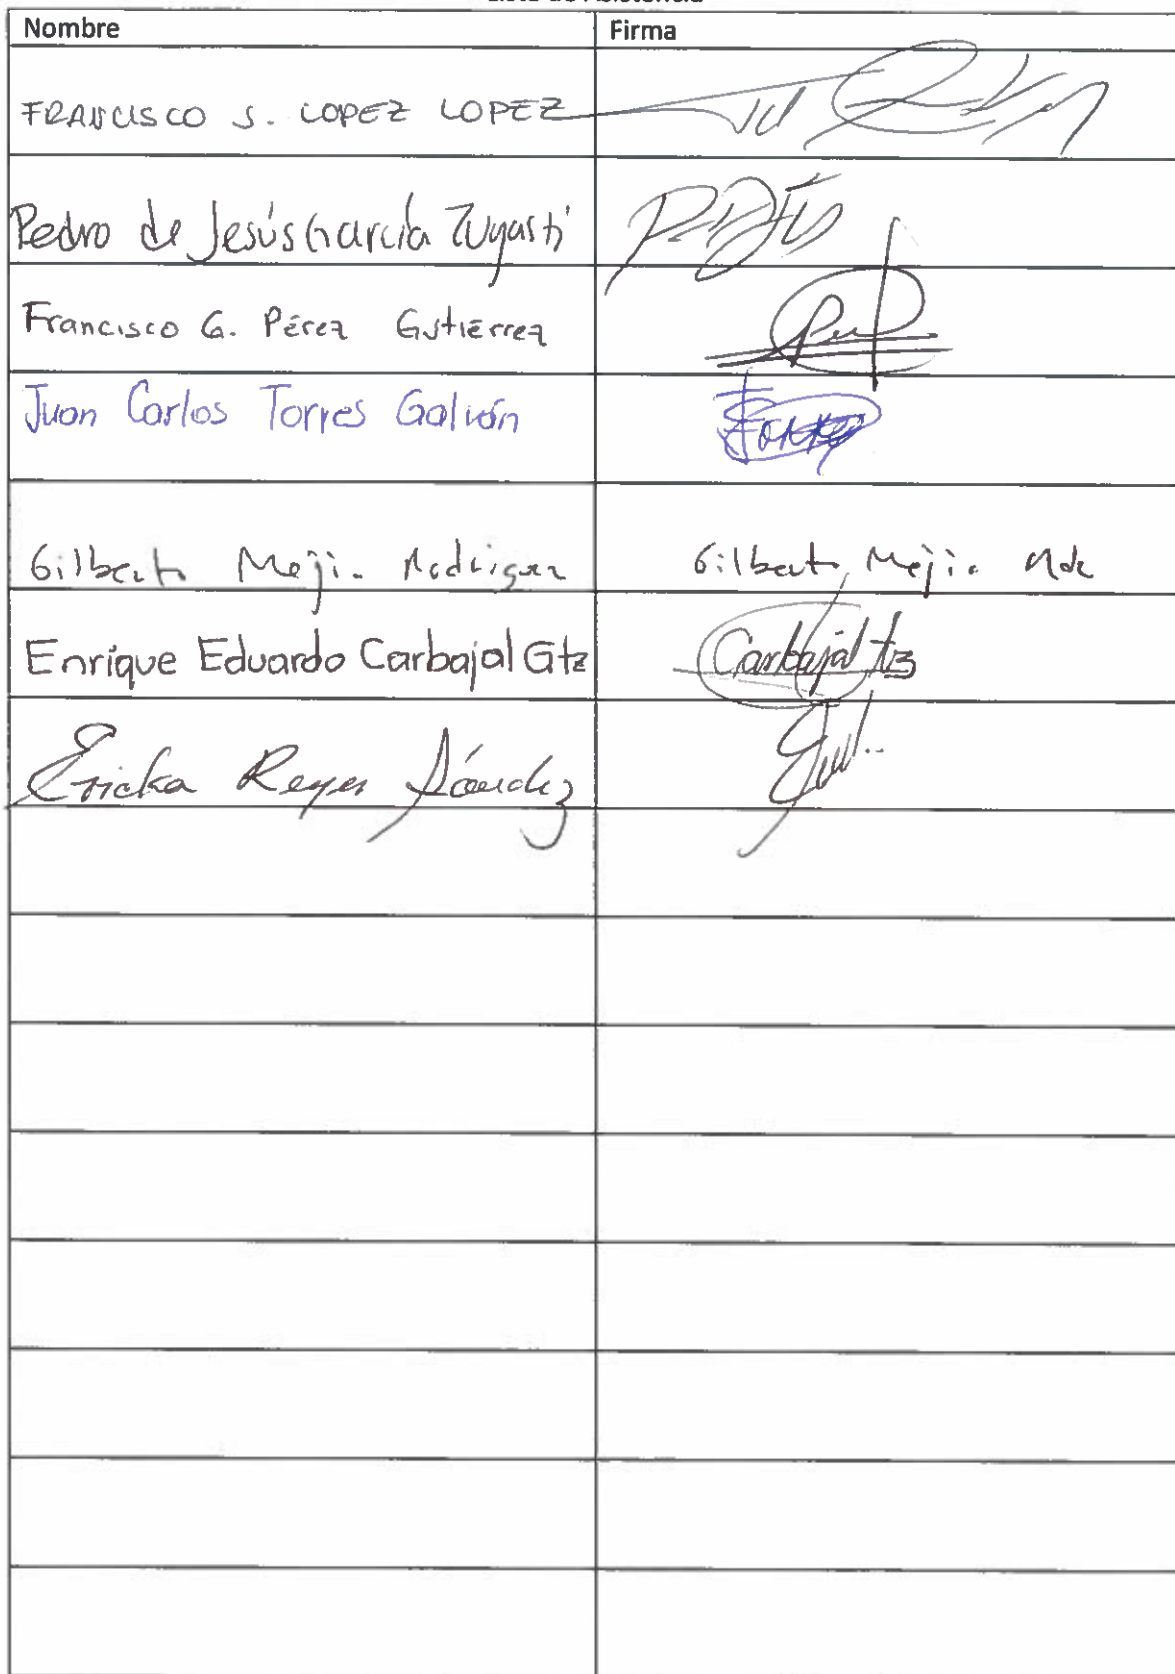 Lista de Asistencia
Nombre Firma
FRANCISCO S. LOPEZ LOPEZ
Pedro de Jesús García Zugasti
Francisco G. Pérez Gutiérrez
Juan Carlos Torres Galván
Gilberto Mejía Rodríguez Gilberto Mejía Rdz
Enrique Eduardo Carbajal Gtz Carbajal Gtz
Ericka Reyes Sánchez